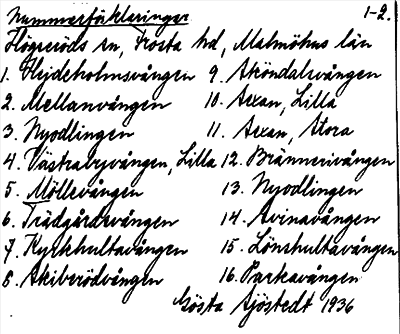 Nummerförklaringar 1-2.
Högseröds sn, Frosta hd, Malmöhus län
1. Hejdeholmsvången 9. Sköndalsvången
2. Mellanvången 10. Axan, Lilla
3. Nyodlingen 11. Axan, Stora
4. Västrabyvången, Lilla 12. Brännerivången
5. Möllevången 13. Nyodlingen
6. Trädgårdsvången 14. Svinavången
7. Kyrkhultavången 15. Lönshultavången
8. Skiberödvången 16. Parkavången
Gösta Sjöstedt 1936